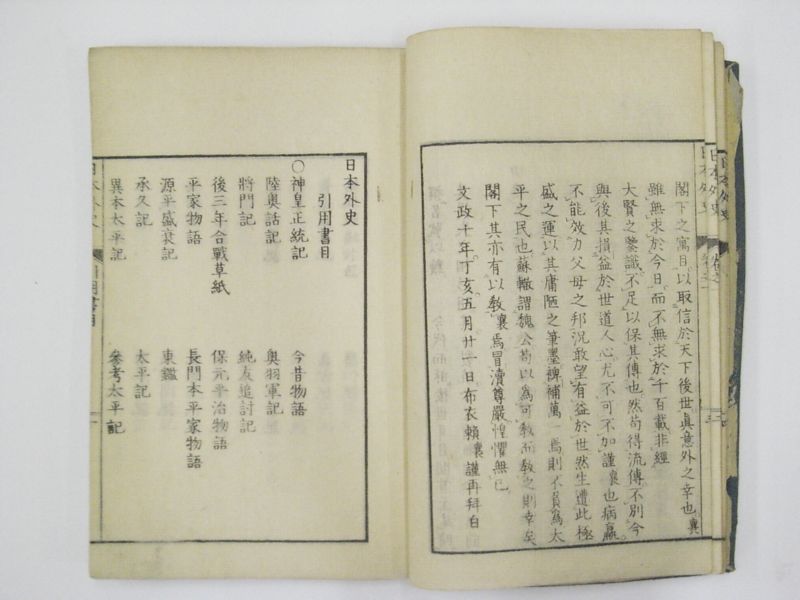 閣下之寓目以取信於天下後世眞意外之幸也襄
雖無求於今日而不無求於千百載非經
大賢之鑒識不足以保其傳也然苟得流傳不別今
與後其損益於世道人心尤不可不加謹襄也病羸
不能效力父母之邦況敢望有益於世然生遭此極
盛之運以其庸陋之筆墨裨補萬一焉則不負爲太
平之民也蘇轍謂魏公苟以爲可教而教之則幸矣
閣下其亦有以教襄焉冒瀆尊嚴惶懼無已
文政十年丁亥五月廿一日布衣賴襄謹再拜白
日本外史
引用書目
○神皇正統記 今昔物語
陸奥話記 奥羽軍記
將門記 純友追討記
後三年合戰草紙 保元平治物語
平家物語 長門本平家物語
源平盛衰記 東鑑
承久記 太平記
異本太平記 參考太平記
日本外史 引用書目
日本外史
日本外史